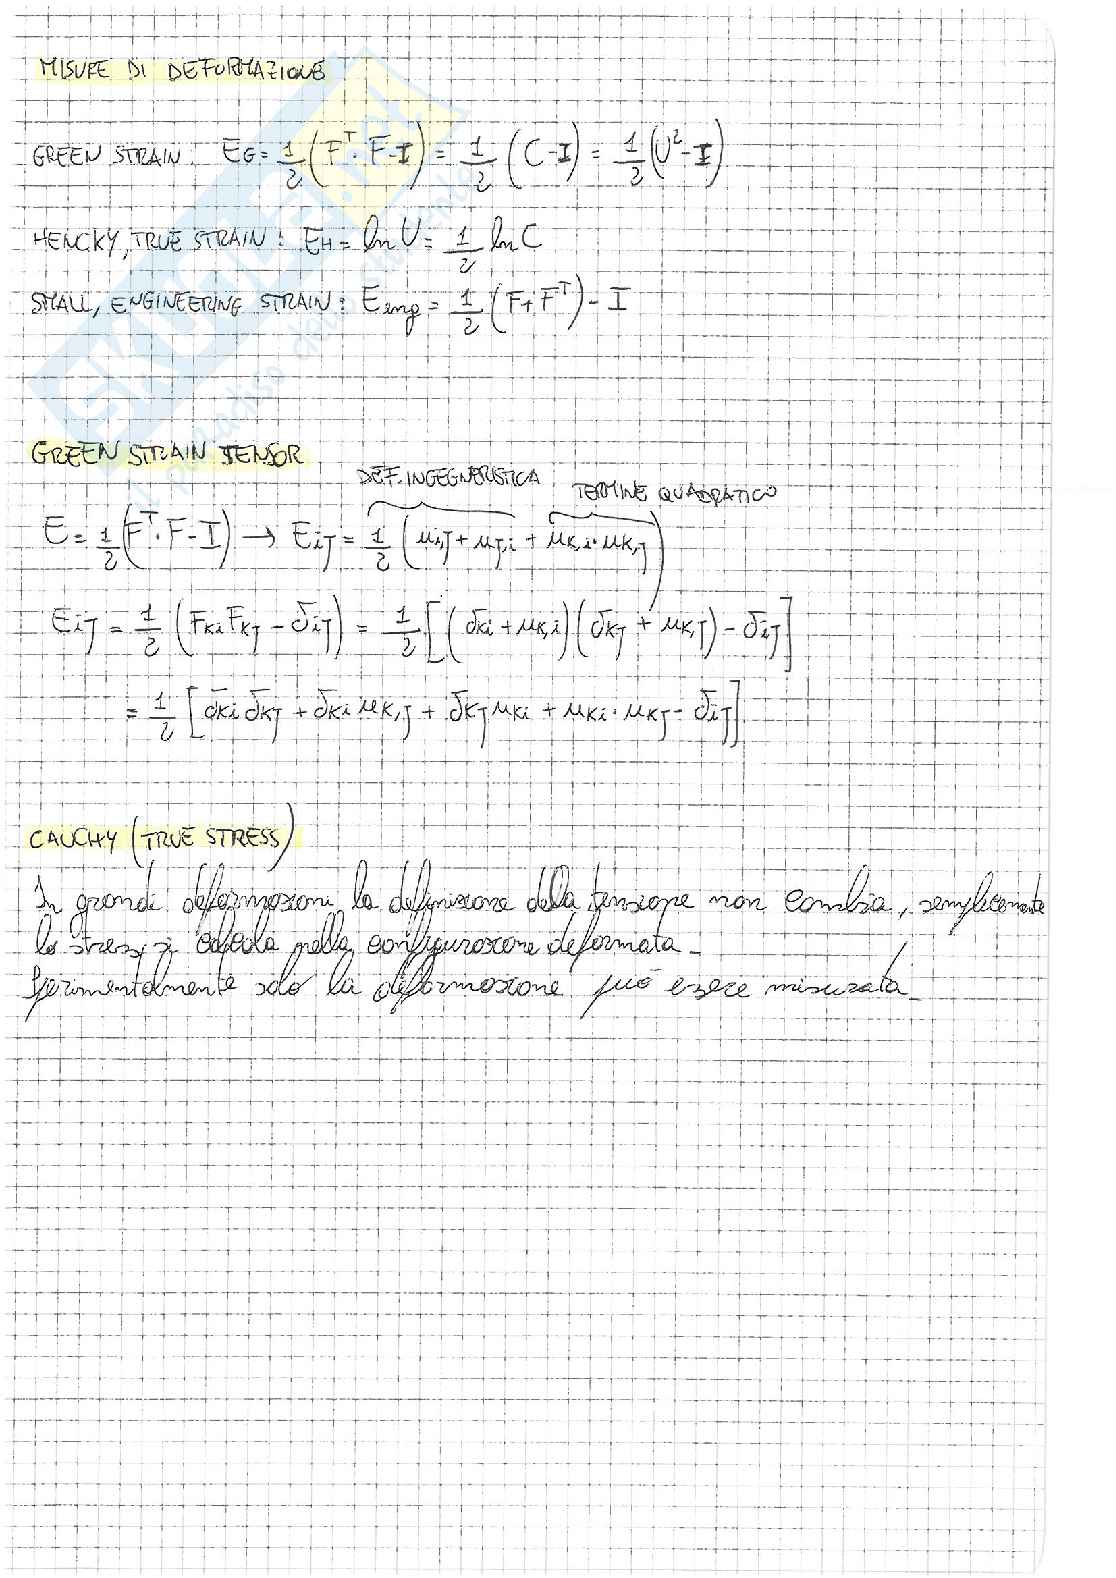 MISURE DI DEFORMAZIONE
GREEN STRAIN: E_G = 1/2 (F^T · F - I) = 1/2 (C - I) = 1/2 (U² - I)
HENCKY, TRUE STRAIN: E_H = ln U = 1/2 ln C
SMALL, ENGINEERING STRAIN: E_eng = 1/2 (F + F^T) - I
GREEN STRAIN TENSOR
DEF. INGEGNERISTICA TERMINE QUADRATICO
E = 1/2 (F^T · F - I) → E_iJ = 1/2 (u_i,J + u_J,i + u_K,i · u_K,J)
E_iJ = 1/2 (F_Ki F_KJ - δ_iJ) = 1/2 [(δ_Ki + u_K,i)(δ_KJ + u_K,J) - δ_iJ]
= 1/2 [δ_Ki δ_KJ + δ_Ki u_K,J + δ_KJ u_Ki + u_Ki · u_KJ - δ_iJ]
CAUCHY (TRUE STRESS)
In grandi deformazioni la definizione della tensione non cambia, semplicemente
lo stress si calcola nella configurazione deformata.
Sperimentalmente solo la deformazione può essere misurata.
SKUOLA.net
il paradiso dello studente